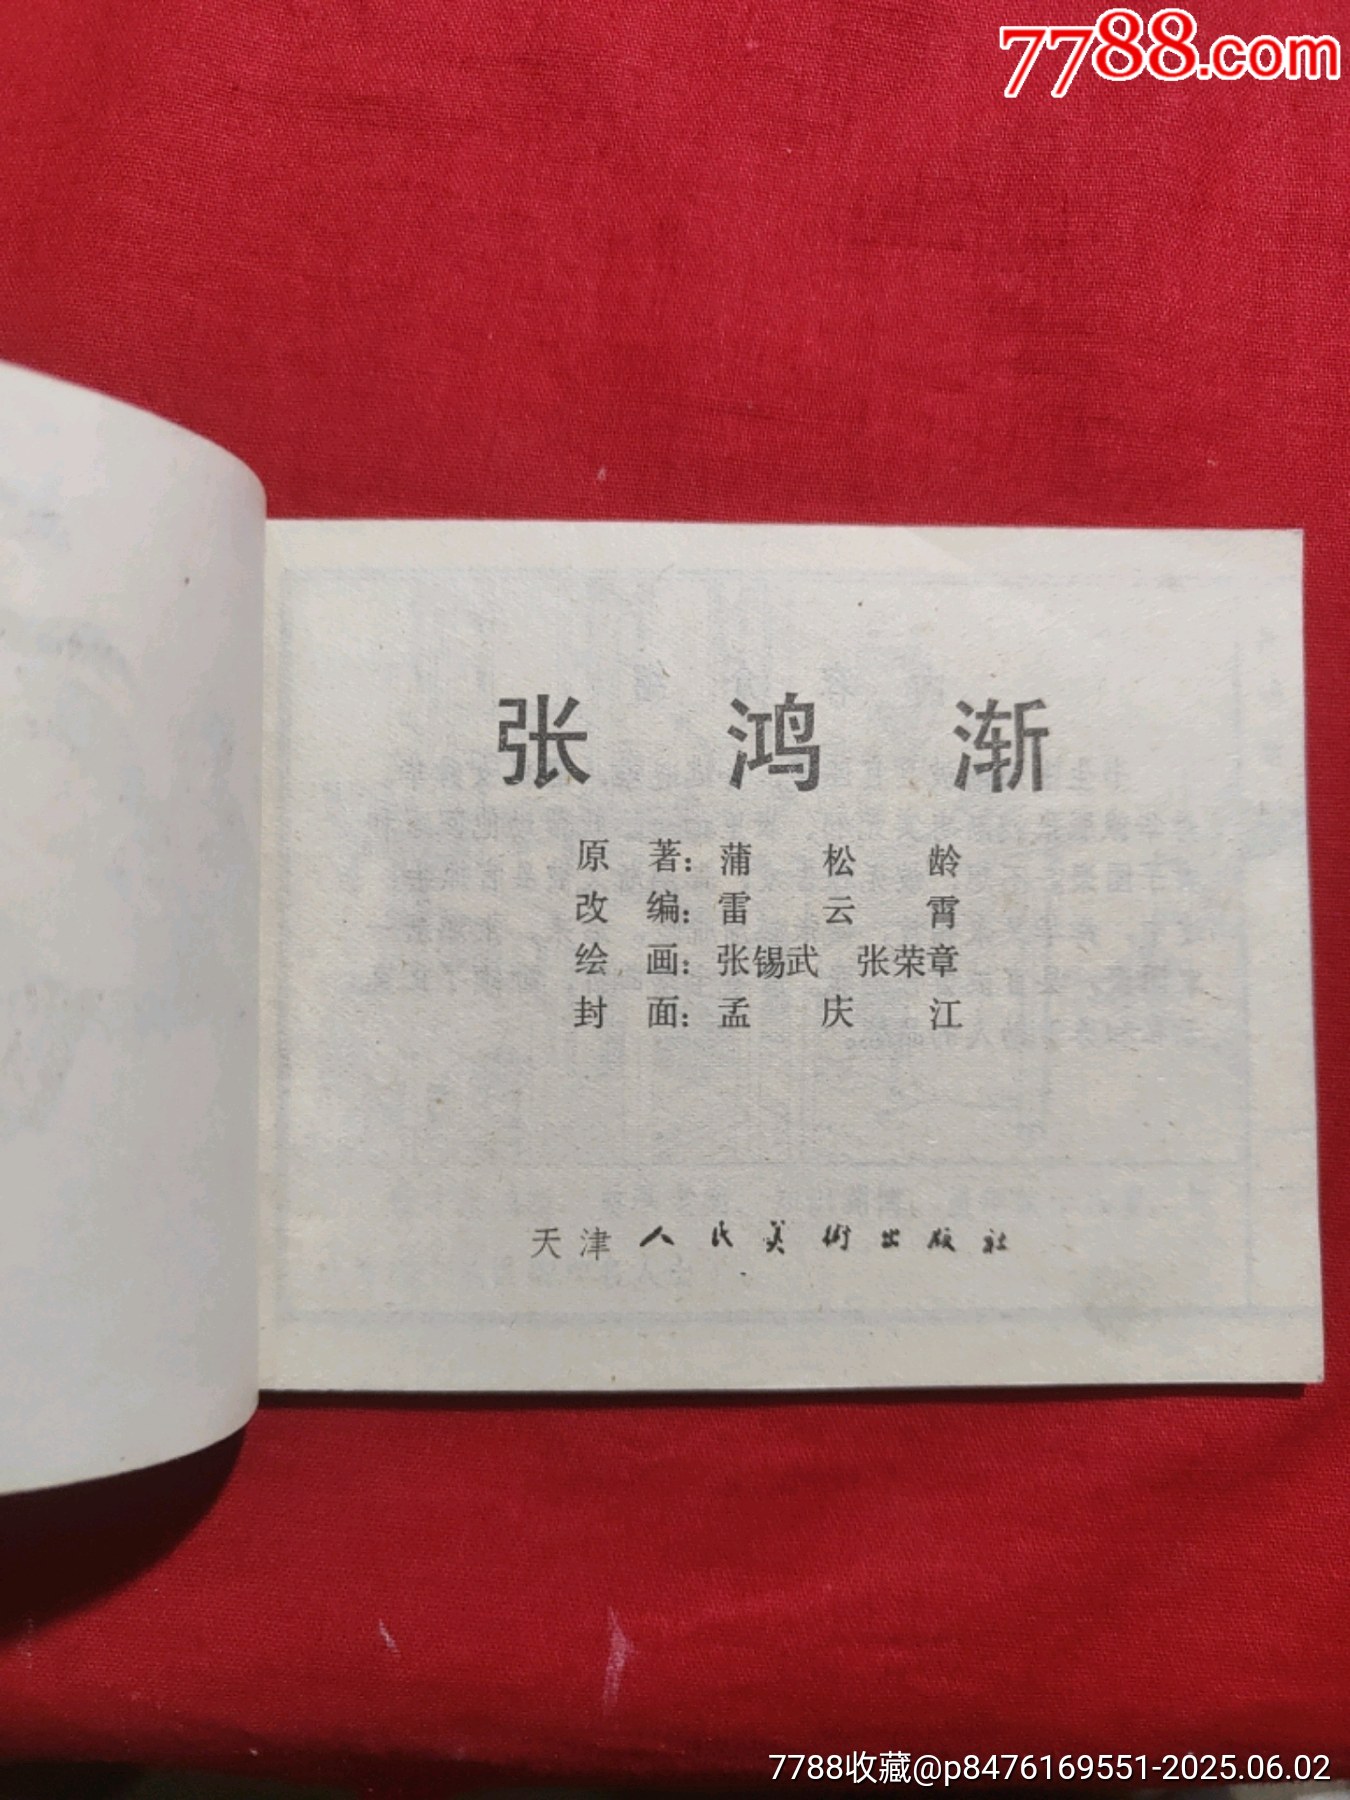 7788.com
张 鸿 渐
原 著：蒲 松 龄
改 编：雷 云 霄
绘 画：张锡武 张荣章
封 面：孟 庆 江
天津人民美術出版社
7788收藏@p8476169551-2025.06.02